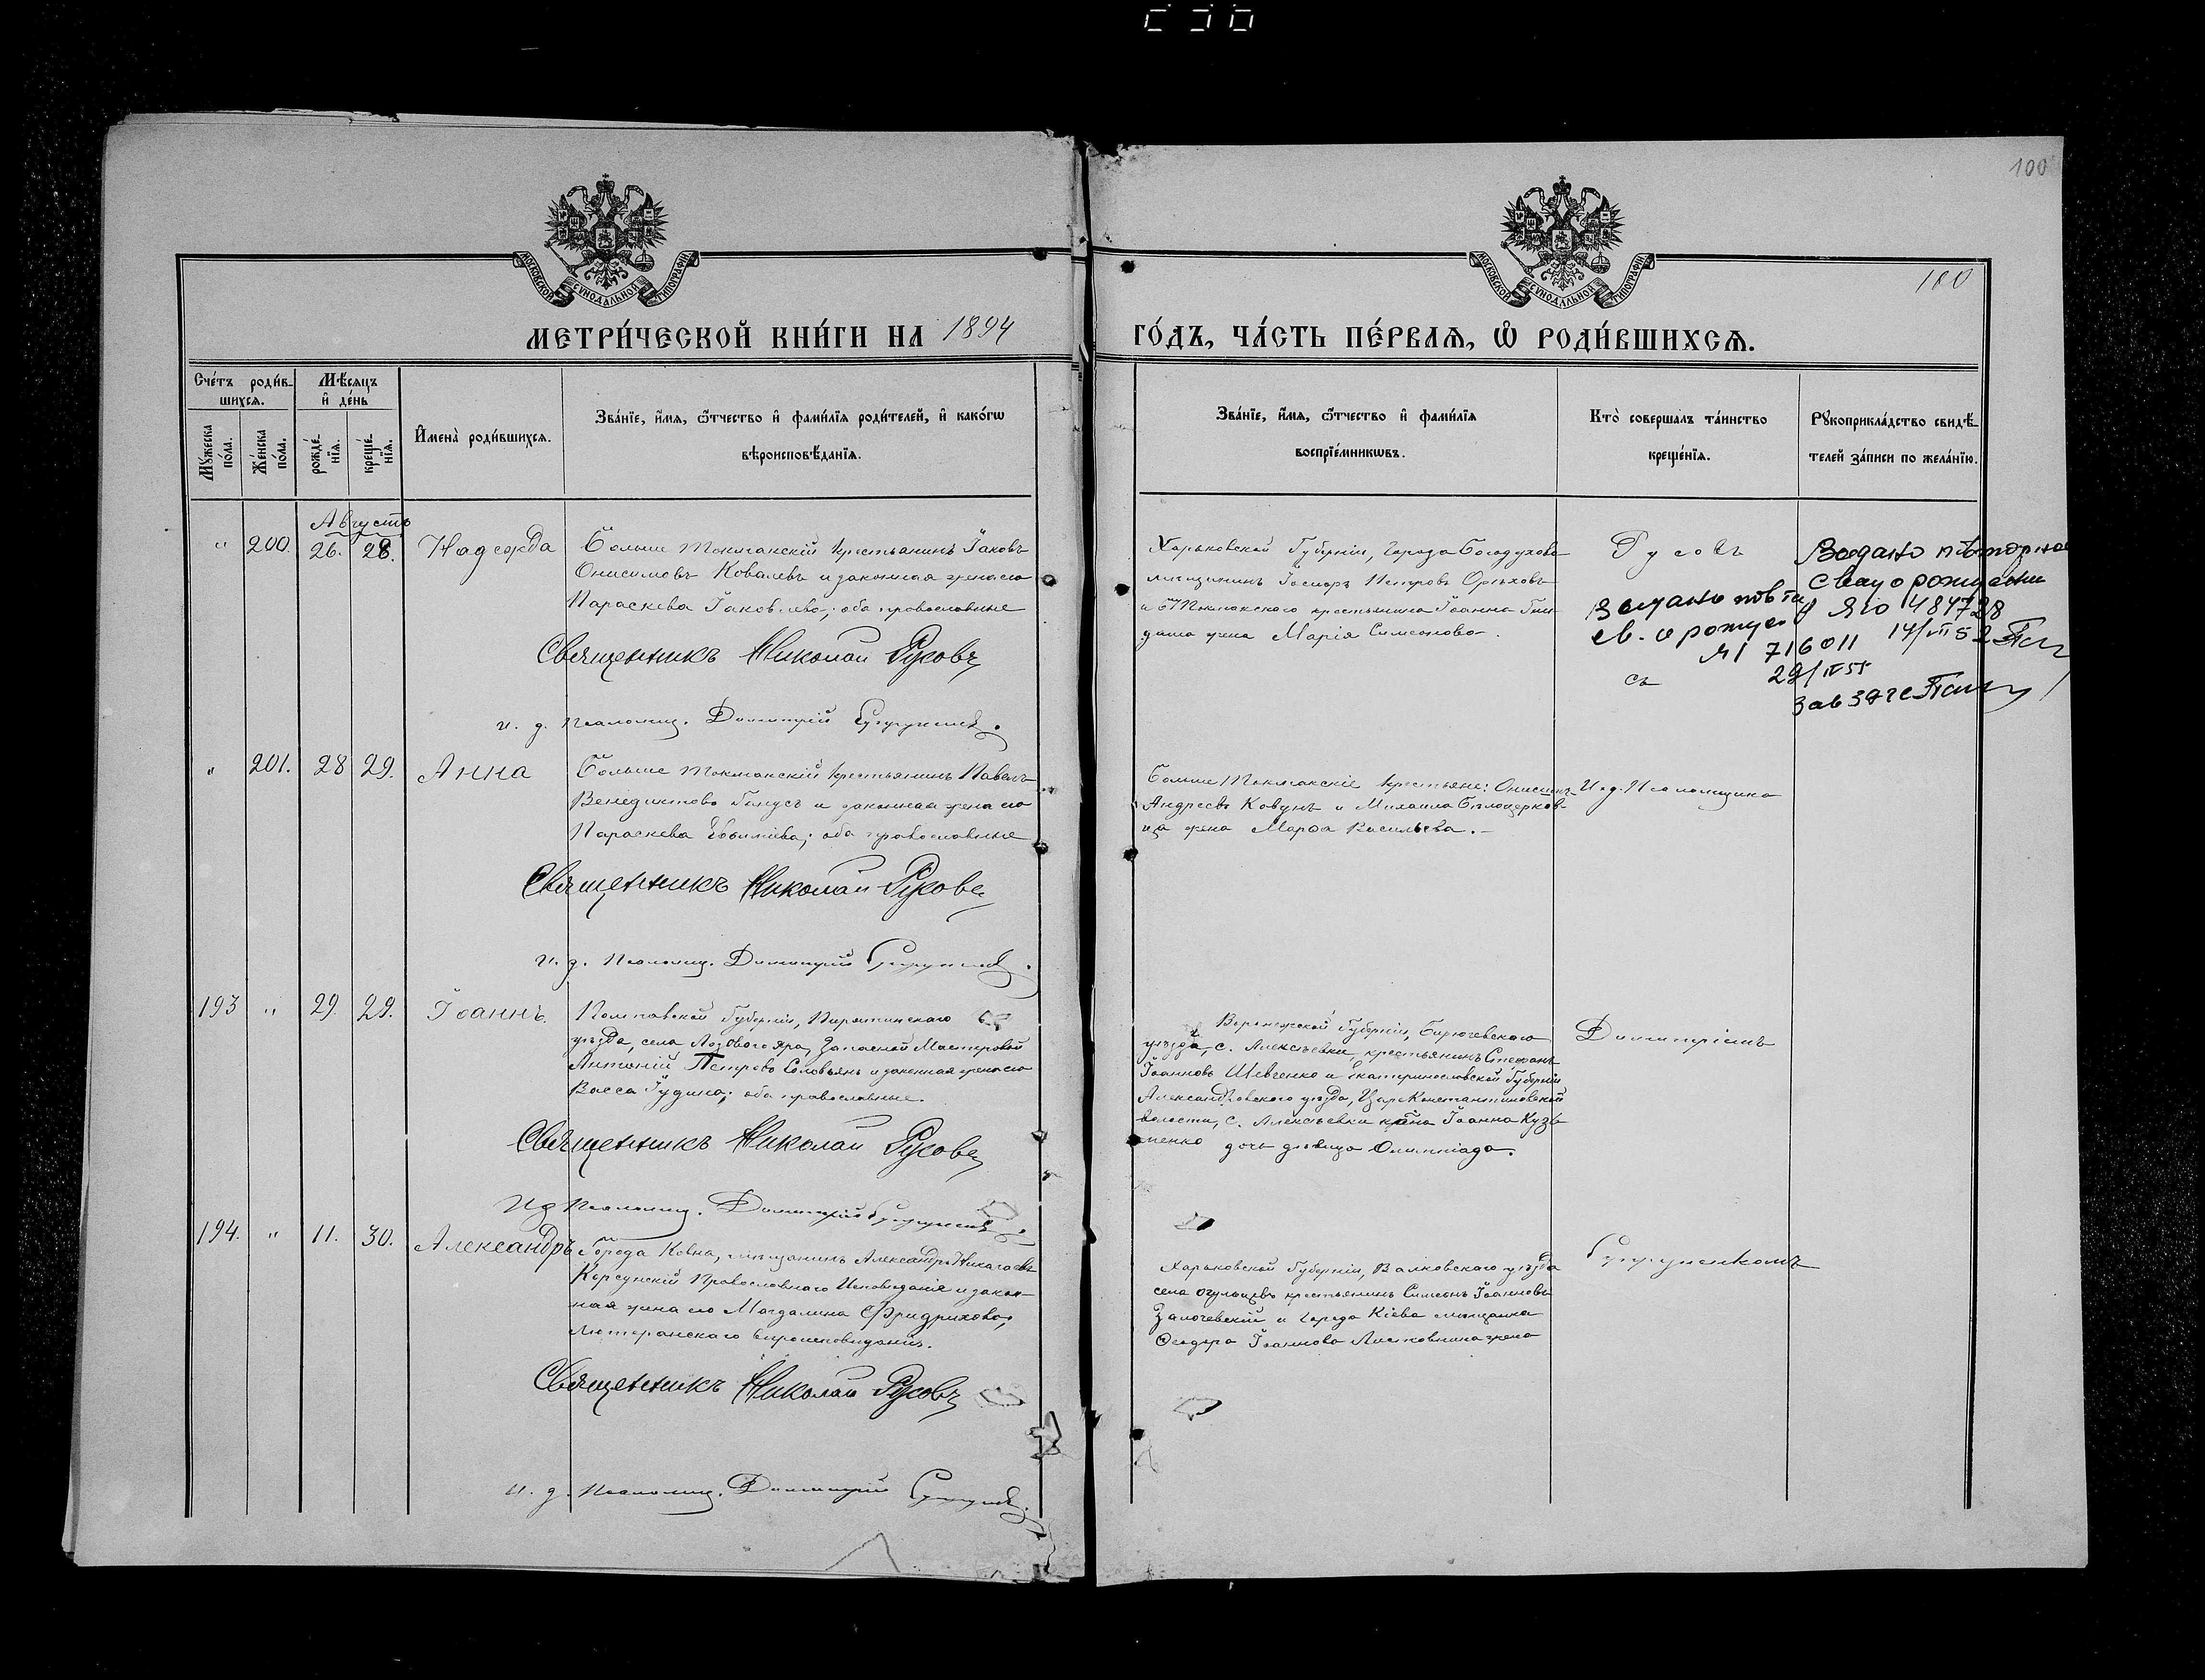 100
МОСКОВСКОЙ СѴНОДАЛЬНОЙ ТИПОГРАФІИ
МОСКОВСКОЙ СѴНОДАЛЬНОЙ ТИПОГРАФІИ
100
МЕТРИ́ЧЕСКОЙ КНИ́ГИ НА 1894
ГО́ДЪ, ЧА́СТЬ ПЕ́РВАѦ, Ѽ РОДИ́ВШИХСѦ.
Сче́тъ роди́в-
шихсѧ.
Мѣ́сѧцъ
и҆ де́нь
Мꙋ́жеска
по́ла.
Же́нска
по́ла.
рожде́-
нїѧ.
креще́-
нїѧ.
И҆мена̀ роди́вшихсѧ.
Зва́нїе, и҆́мѧ, ѻ҆́тчество и҆ фами́лїѧ роди́телей, и҆ како́гѡ
вѣроисповѣ́данїѧ.
Зва́нїе, и҆́мѧ, ѻ҆́тчество и҆ фами́лїѧ
воспрїе́мникѡвъ.
Кто̀ соверша́лъ та́инство
креще́нїѧ.
Рꙋкоприкла́дство свидѣ́-
телей за́писи по жела́нїю.
Августъ
" 200. 26. 28. Надежда
Больше Токмакскій крестьянинъ Іаковъ
Онисимовъ Ковалевъ и законная жена его
Параскева Іаковлева; оба православные
Священникъ Николай Русовъ
и. д. Псаломщ. Димитрій
Харьковской Губерніи, Города Богодухова
мѣщанинъ Петровъ Орѣховъ
и Б. Токмакского крестьянина Іоанна
жена Марія Симеонова.
Русовъ
съ
Выдано повторное
св. о рожд.
716011
29/IV 55
Выдано повторное
свид о рождении
ЯЮ 484728
14/VII 52
зав загс
" 201. 28 29. Анна
Больше Токмакскій крестьянинъ Павелъ
Венедиктовъ и законная жена его
Параскева Евфиміева; оба православные
Священникъ Николай Русовъ
и. д. Псаломщ. Димитрій
Больше Токмакскіе крестьяне: Онисимъ
Андреевъ Ковунъ и Михаила Бѣлоцерков-
ца жена Марфа Васильева.
И. д. Псаломщика
193 " 29. 29. Іоаннъ.
Полтавской Губерніи, Пирятинскаго
уѣзда, села Лозового Яра, Запасной Мастеровой
Антоній Петровъ Соловьянъ и законная жена его
Васса Іудина; оба православные.
Священникъ Николай Русовъ
И д Псаломщ. Димитрій
Воронежской Губерніи, Бирюческаго
уѣзда, с. Алексѣевки, крестьянинъ Стефанъ
Іоанновъ Шевченко и Екатеринославской Губерніи
Александровского уѣзда, Царе Константиновской
волости, с. Алексѣевки кр-на Іоанна Кузь-
менко дочь дѣвица Олимпіада.
Димитріемъ
194. " 11. 30. Александръ
Города Ковна, мѣщанинъ Александръ Николаевъ
Корсунскій Православнаго Исповѣданія и закон-
ная жена его Магдалина Фридрихова,
лютеранскаго вѣроисповѣданія.
Священникъ Николай Русовъ
и. д. Псаломщ. Димитрій
Харьковской Губерніи, Валковскаго уѣзда
села Огульцевъ крестьянинъ Симеонъ Іоанновъ
Залочевскій и города Кіева мѣщанка
Феодора Іоаннова жена